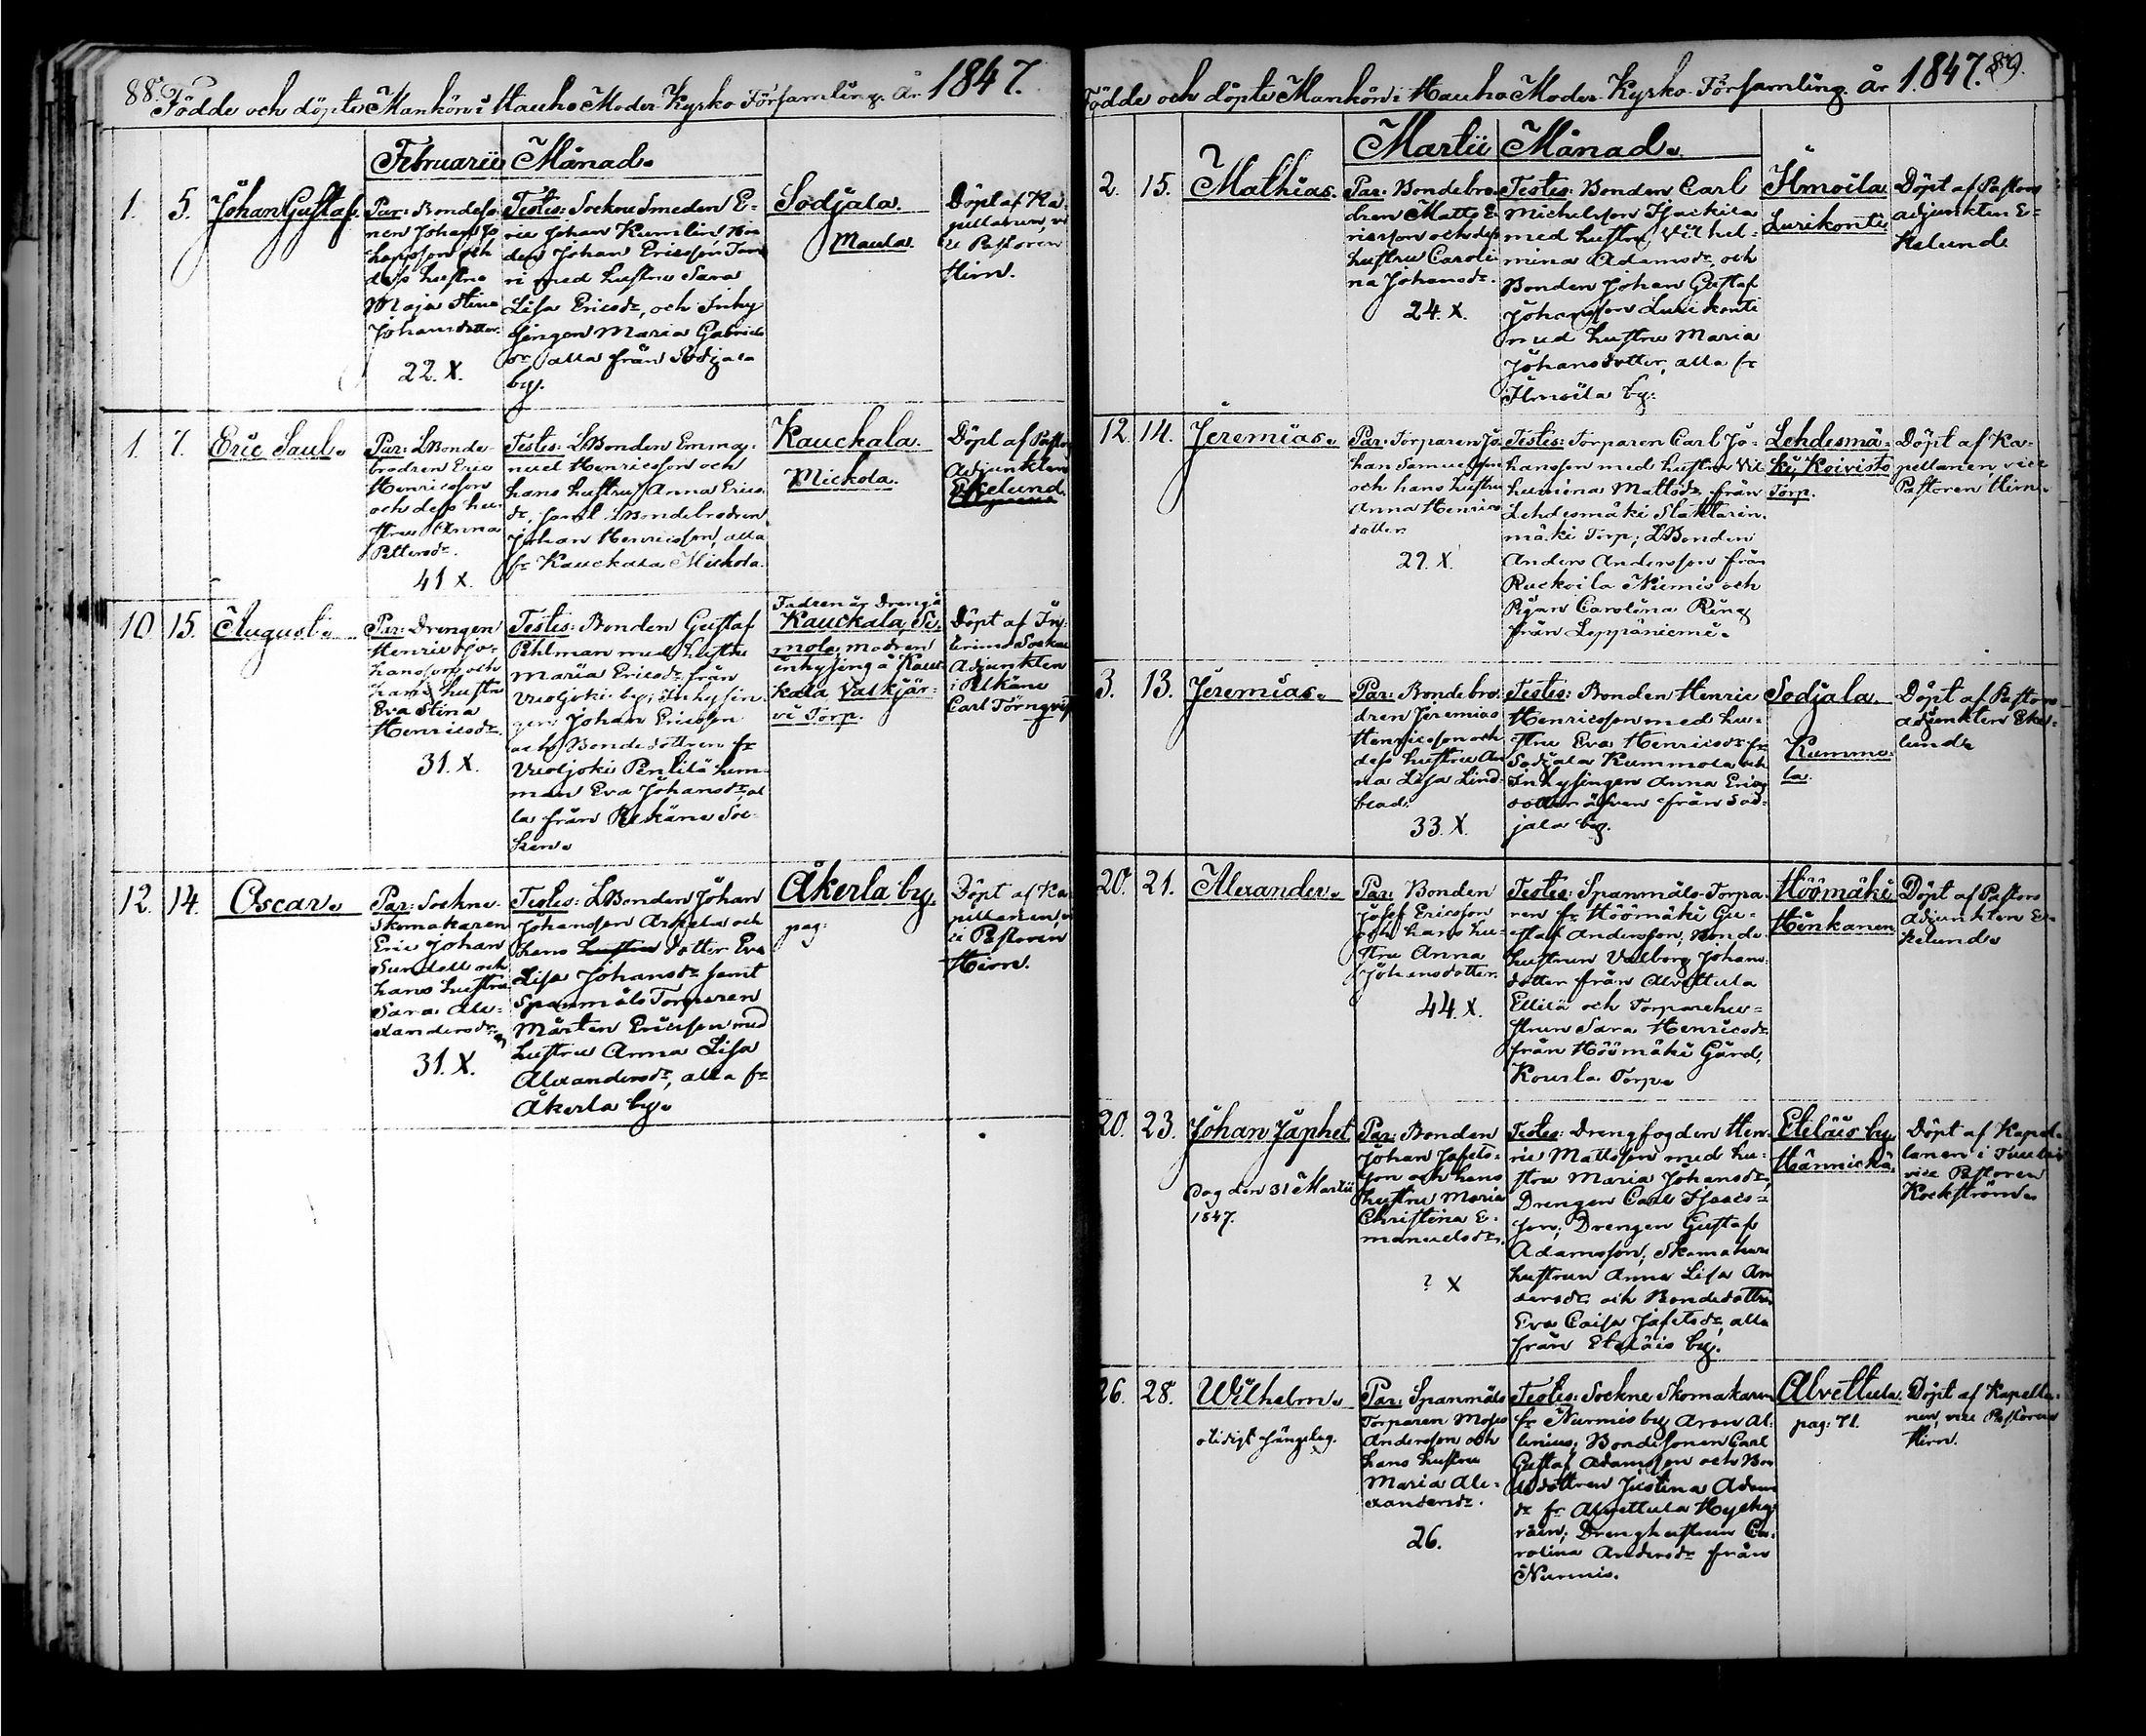 88. Födde och döpte Mankön i Hauho Moder Kyrko Församling. År 1847.
Februarii Månad.
1. 5. Johan Gustaf.
Par: Bondeso-
nen Johan Jo
hansson och
dess hustru
Maja Stina
Johansdotter.
22. X.
Testes: Socken Smeden E-
ric Johan Kumlin Bon
den Johan Ericsson
med hustru Sara
Lisa Ericsdr, och Inhy
singen Maria Gabriels
dr, alla från Sodjala
by.
Sodjala.
Maula.
Döpt af Ka-
pellanen, vi
ce Pastoren
Hirn.
1. 7. Eric Saul.
Par: LBonde-
brodren Eric
Henricsson
och dess hu-
stru Anna
Pettersdr.
41 X.
Testes: LBonden Emma-
nuel Henricsson och
hans hustru Anna Erics
dr, samt LBondebrodren
Johan Henricsson, alla
fr Kauckala Mickola.
Kauckala.
Mickola.
Döpt af Pastors
Adjunkten
Ekelund.
10. 15. August.
Par: Drengen
Henric Jo-
hansson och
hans hustru
Eva Stina
Henricsdr.
31. X.
Testes: Bonden Gustaf
Pihlman med hustru
Maria Ericsdr från
Vuoljoki by; Inhysin-
gen Johan Ericsson
och Bondedottren fr
Vuoljoki Penlilä hem-
man Eva Johansdr, al
la från Pelkäne Soc-
ken.
Fadren är Dreng å
Kauckala, Si-
mola, modren
inhysing å Kauc-
kala Valkjär-
vi Torp.
Döpt af
Adjunkten
i Pelkäne
Carl Törnqvist
12. 14. Oscar.
Par: Sockne-
Skomakaren
Eric Johan
Sundell och
hans hustru
Sara Ale-
xandersdr.
31. X.
Testes: LBonden Johan
Johansson Arpela och
hans hustru dotter Eva
Lisa Johansdr samt
Spanmåls Torparen
Mårten Ericsson med
hustru Anna Lisa
Alexandersdr, alla fr
Åkerla by.
Åkerla by.
pag:
Döpt af Ka-
pellanen, vi
ce Pastoren
Hirn.
Födde och döpte Mankön i Hauho Moder Kyrko Församling. år 1847. 89.
Martii Månad.
2. 15. Mathias.
Par: Bondebro-
dren Matts E-
ricsson och dess
hustru Caroli-
na Johansdr.
24. X.
Testes: Bonden Carl
Michelsson Isackila
med hustru Vilhel-
mina Adamsdr, och
Bonden Johan Gustaf
Johansson Lurikonti
med hustru Maria
Johansdotter, alla fr
Ilmoila by.
Ilmoila
Lurikonti
Döpt af Pastors
adjunkten E-
kelund
12. 14. Jeremias.
Par: Torparen Jo
han Samuelsson
och hans hustru
Anna Henrics
dotter.
22. X.
Testes: Torparen Carl Jo-
hansson med hustru Vil
helmina Mattsdr, från
Lehdesmäki
mäki Torp; LBonden
Anders Andersson från
Ruckoila Niemis och
Pigan Carolina Ring
från Leppäniemi.
Lehdesmä-
ki, Koivisto
Torp.
Döpt af Ka-
pellanen vice
Pastoren Hirn.
3. 13. Jeremias.
Par: Bondebro-
dren Jeremias
Henricsson och
dess hustru An
na Lisa Lind-
blad.
33. X.
Testes: Bonden Henric
Henricsson med hu-
stru Eva Henricsdr fr
Sodjala Kummola och
Inhysingen Anna Erics
dotter äfven från Sod-
jala by.
Sodjala.
Kummo-
la.
Döpt af Pastors
adjunkten Eke-
lund
20. 21. Alexander.
Par: Bonden
Josef Ericsson
och hans hu-
stru Anna
Johansdotter.
44. X.
Testes: Spanmåls-Torpa-
ren fr Höömäki Gu-
staf Andersson; Bonde-
hustrun Valborg Johans-
dotter från Alvettula
Ellilä och Torparehu-
strun Sara Henricsdr
från Höömäki Gård,
Kourla Torp.
Höömäki
Henkanen
Döpt af Pastors
Adjunkten E-
kelund.
20. 23. Johan Japhet
Dog den 31 Martii
1847.
Par: Bonden
Johan Jafets-
son och hans
hustru Maria
Christina E-
manuelsdr.
? X
Testes: Drengfogden Hen-
ric Mattsson med hu-
stru Maria Johansdr,
Drengen Carl Isaacs-
son; Drengen Gustaf
Adamsson; Skomakare
hustrun Anna Lisa An
dersdr och Bondedottren
Eva Caisa Jafetsdr, alla
från Eteläis by.
Eteläis by
Hännickä.
Döpt af Kapel-
lanen i Tuulois
vice Pastoren
Kockström.
26. 28. Wilhelm.
Par: Spanmåls
Torparen Moses
Andersson och
hans hustru
Maria Ale-
xandersdr.
26.
Testes: Sockne Skomakaren
fr Nurmis by Aron Al-
lenius; Bondesonen Carl
Gustaf Adamsson och Bon
dedottren Justina Adams
dr fr Alvettula
Drenghustrun Ca-
rolina Andersdr från
Nurmis.
Alvettula.
pag: 71.
Döpt af Kapella-
nen, vice Pastoren
Hirn.